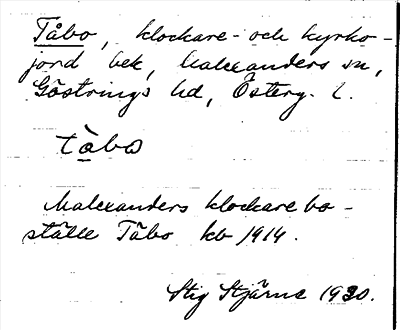 Tåbo, klockare- och kyrko-
jord bek, Malexanders sn,
Göstrings hd, Österg. l.
tå̀bω
Malexanders klockarebo-
ställe Tåbo kb 1914.
Stig Stjärne 1930.